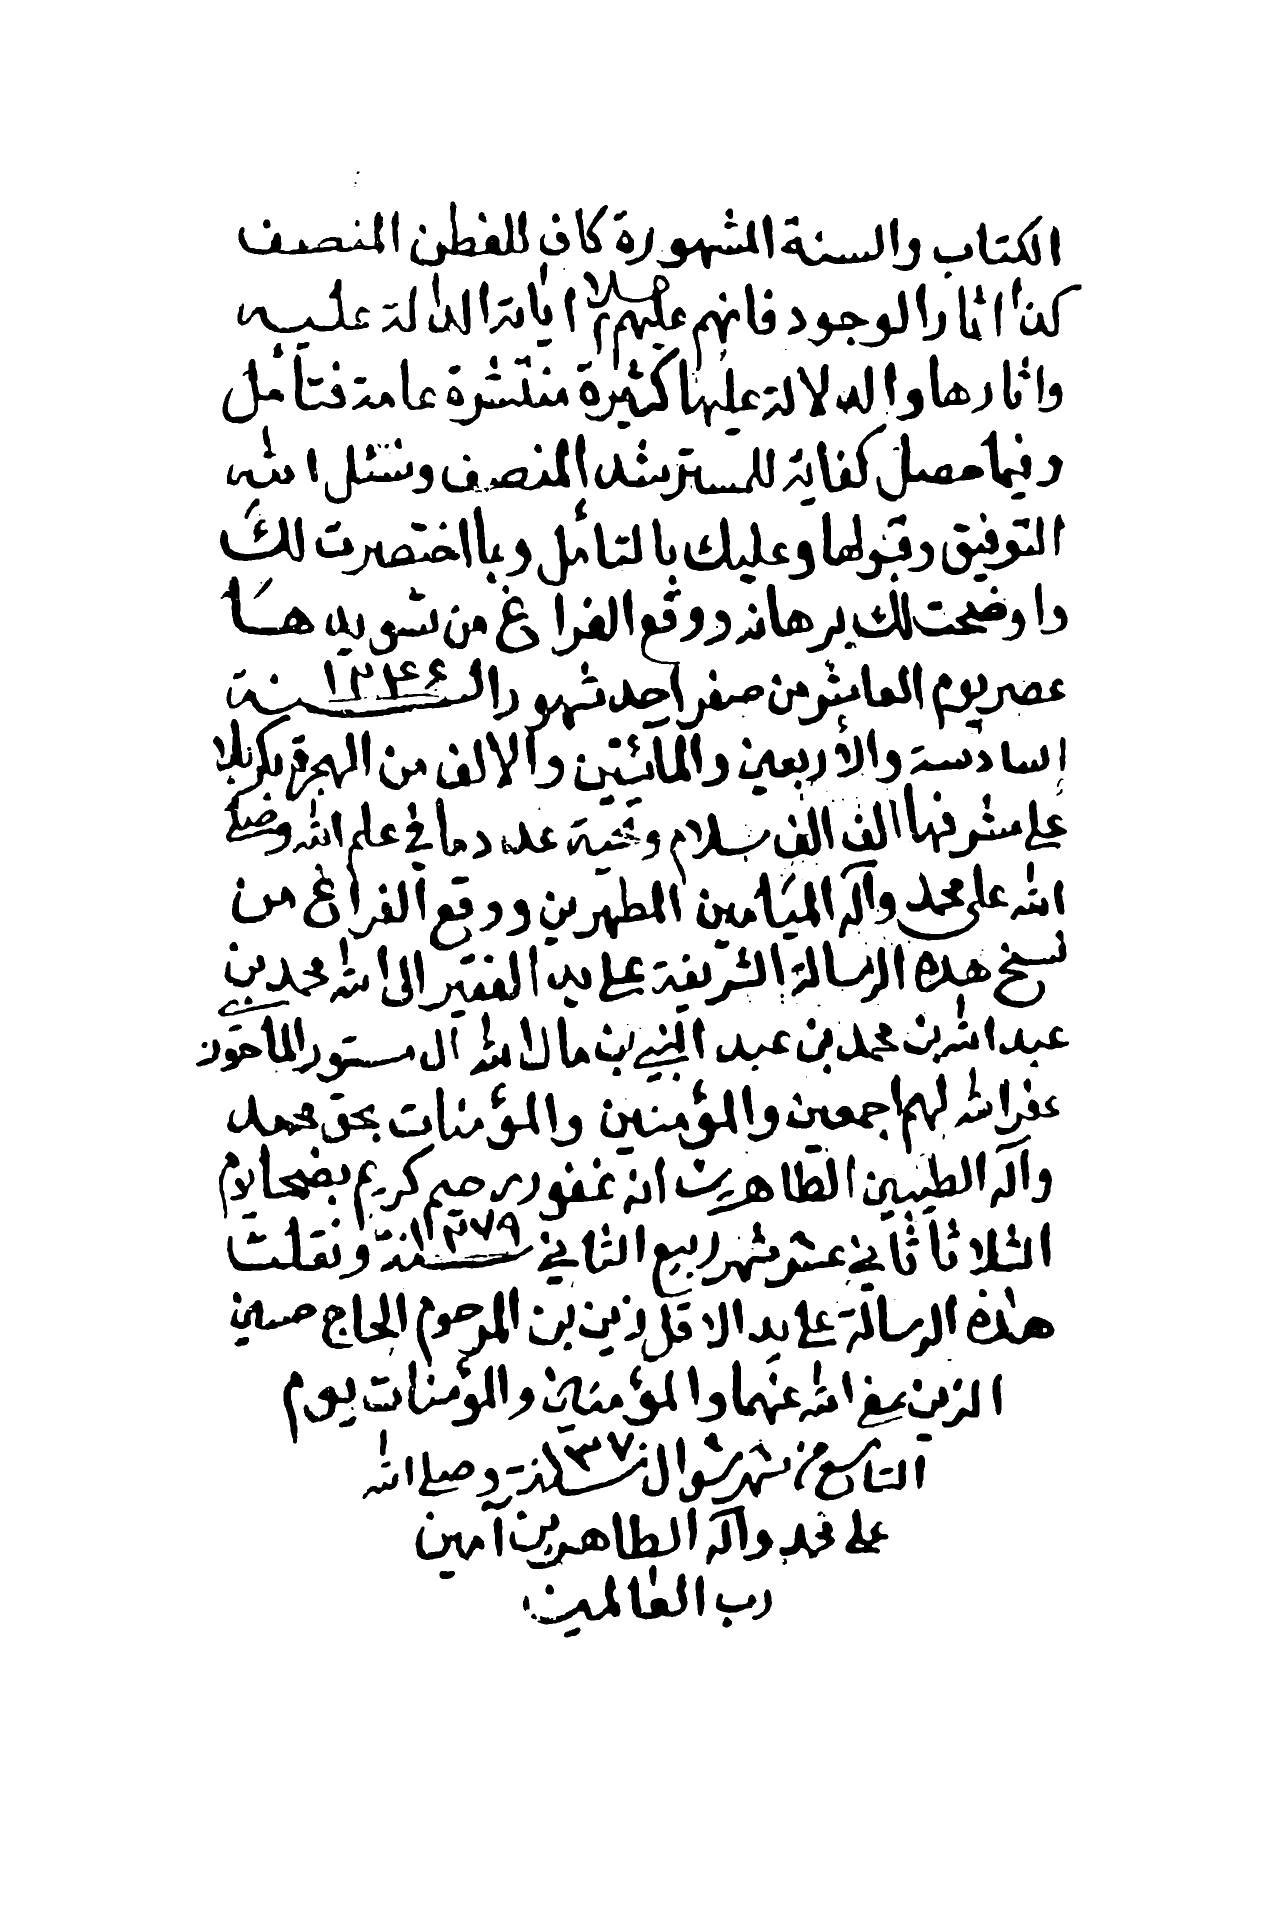 الكتاب والسنة المشهورة كاف للفطن المنصف
كذا اثار الوجود فانهم عليهم السلام اياته الدالة عليه
واثارها والدلالة عليها كثيرة منتشرة عامة فتأمل
وفيما حصل كفاية للمسترشد المنصف ونسئل الله
التوفيق وقبولها وعليك بالتأمل وبما اختصرت لك
واوضحت لك برهانه ووقع الفراغ من تسويدها
عصر يوم العاشر من صفر احد شهور السنة ١٢٤٦
السادسة والأربعين والمائتين والالف من الهجرة بكربلا
على مشرفها الف الف سلام وتحية عدد ما في علم الله وصلى
الله على محمد وآله الميامين المطهرين ووقع الفراغ من
نسخ هذه الرسالة الشريفة على يد الفقير الى الله محمد بن
عبد الله بن محمد بن عبد النبي بن مال الله آل مستور الماحوزي
غفر الله لهم اجمعين والمؤمنين والمؤمنات بحق محمد
وآله الطيبين الطاهرين انه غفور رحيم كريم بضحا يوم
الثلاثا ثاني عشر شهر ربيع الثاني سنة ١٢٧٩ ونقلت
هذه الرسالة على يد الاقل زين بن المرحوم الحاج حسين
الزين عفى الله عنهما والمؤمنين والمؤمنات يوم
التاسع من شهر شوال سنة وصلى الله
على محمد وآله الطاهرين آمين
رب العالمين